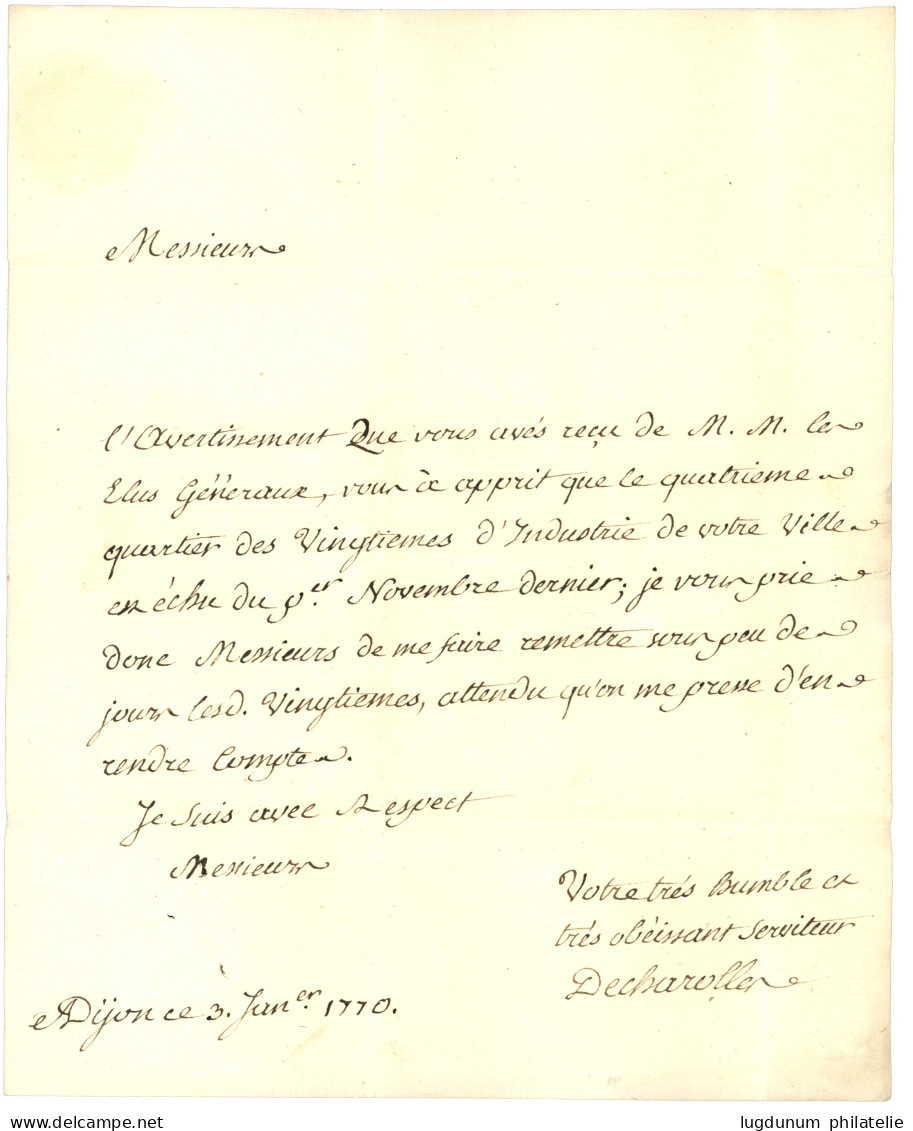 Messieurs
l'Avertissement Que vous avés reçu de M. M. les
Elus Généraux, vous à apprit que le quatrieme
quartier des Vingtiemes d'Industrie de votre Ville
est échu du p.er Novembre dernier; je vous prie
donc Messieurs de me faire remettre sous peu de
jours lesd. Vingtiemes, attendu qu'on me presse d'en
rendre Compte.
Je Suis avec Respect
Messieurs
Votre trés humble et
trés obéissant Serviteur
Decharolles
A Dijon ce 3. Jan.er 1770.
lugdunum philatelie